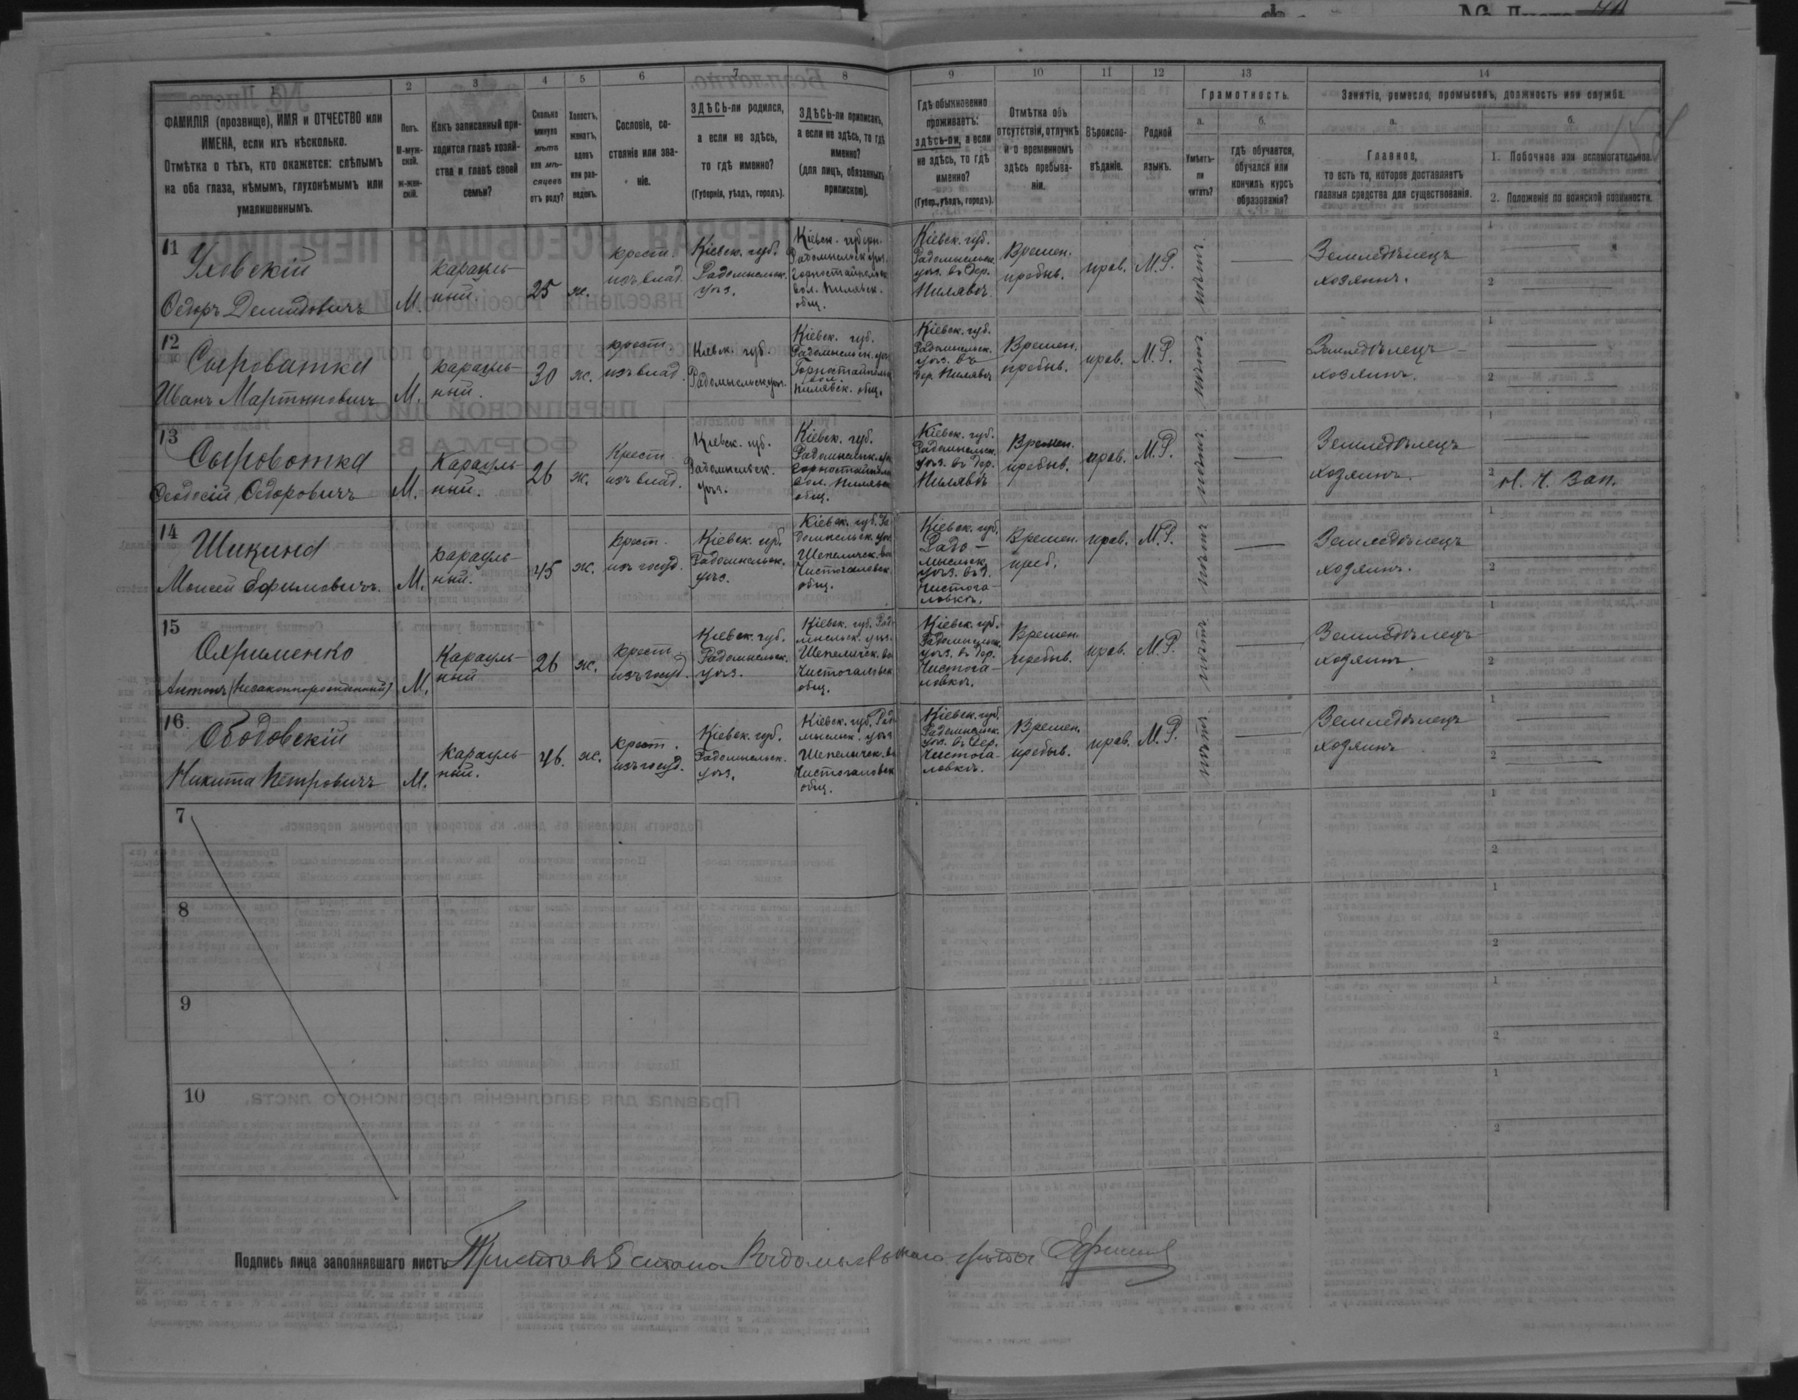 1 2 3 4 5 6 7 8 9 10 11 12 13 14
ФАМИЛІЯ (прозвище), ИМЯ и ОТЧЕСТВО или
ИМЕНА, если ихъ нѣсколько.
Отмѣтка о тѣхъ, кто окажется: слѣпымъ
на оба глаза, нѣмымъ, глухонѣмымъ или
умалишеннымъ.
Полъ.
М-муж-
ской.
ж-жен-
скій.
Какъ записанный при-
ходится главѣ хозяй-
ства и главѣ своей
семьи?
Сколько
минуло
лѣтъ
или мѣ-
сяцевъ
отъ роду?
Холостъ,
женатъ,
вдовъ
или раз-
веденъ.
Сословіе, со-
стояніе или зва-
ніе.
ЗДѢСЬ-ли родился,
а если не здѣсь,
то гдѣ именно?
(Губернія, уѣздъ, городъ).
ЗДѢСЬ-ли приписанъ,
а если не здѣсь, то гдѣ
именно?
(для лицъ, обязанныхъ
припискою).
Гдѣ обыкновенно
проживаетъ:
здѣсь-ли, а если
не здѣсь, то гдѣ
именно?
(Губер., уѣздъ, городъ).
Отмѣтка объ
отсутствіи, отлучкѣ
и о временномъ
здѣсь пребыва-
ніи.
Вѣроиспо-
вѣданіе.
Родной
языкъ.
Грамотность.
а.
Умѣетъ-
ли
читать?
б.
Гдѣ обучается,
обучался или
кончилъ курсъ
образованія?
Занятіе, ремесло, промыселъ, должность или служба.
а.
Главное,
то есть то, которое доставляетъ
главныя средства для существованія.
б.
1. Побочное или вспомогательное.
2. Положеніе по воинской повинности.
11
Ѳедоръ Демидовичъ
М.
Карауль-
ный.
25
ж.
крест.
изъ влад.
Кіевск. губ.
Радомысльск.
уѣз.
Кіевск. губерн.
Радомысльск. уѣз.
Горностайпольск.
вол. Пилявск.
общ.
Кіевск. губ.
Радомысльск.
уѣз. въ дер.
Пилявѣ
Времен.
пребыв.
прав.
М.Р.
нѣтъ
Земледѣлецъ
хозяинъ.
12
Сыроватка
Иванъ Мартиновичъ
М.
Карауль-
ный.
30
ж.
крест.
изъ влад.
Кіевск. губ.
Радомысльск. уѣз.
Кіевск. губ.
Радомысльск. уѣз.
Горностайпольск.
вол.
Пилявск. общ.
Кіевск. губ.
Радомысльск.
уѣз. въ
дер. Пилявѣ
Времен.
пребыв.
прав.
М.Р.
нѣтъ
Земледѣлецъ
хозяинъ.
13
Сыроватка
Ѳеодосій Ѳедоровичъ
М.
Карауль-
ный.
26
ж.
Крест.
изъ влад.
Кіевск. губ.
Радомысльск.
уѣз.
Кіевск. губ.
Радомысльск. уѣз.
Горностайпольск.
вол. Пилявск.
общ.
Кіевск. губ.
Радомысльск.
уѣз. въ дер.
Пилявѣ
Времен.
пребыв.
прав.
М.Р.
нѣтъ
Земледѣлецъ
хозяинъ.
Н. Ч. Зап.
14
Моисей Ефимовичъ.
М.
Карауль-
ный.
45
ж.
крест.
изъ госуд.
Кіевск. губ.
Радомысльск.
уѣз.
Кіевск. губ. Ра-
домысльск. уѣз.
Шепеличск. вол.
Чистогаловск.
общ.
Кіевск. губ.
Радо-
мысльск.
уѣз. въ д.
Чистога-
ловкѣ.
Времен.
преб.
прав.
М.Р.
нѣтъ
Земледѣлецъ
хозяинъ.
15
Охрименко
Антонъ (незаконнорожденный)
М.
Карауль-
ный
26
ж.
крест.
изъ госуд.
Кіевск. губ.
Радомысльск.
уѣз.
Кіевск. губ. Радо-
мысльск. уѣз.
Шепеличск. вол.
Чистогаловск.
общ.
Кіевск. губ.
Радомысльск.
уѣз. въ дер.
Чистога-
ловкѣ.
Времен.
пребыв.
прав.
М.Р.
нѣтъ
Земледѣлецъ
хозяинъ.
16.
Ободовскій
Никита Петровичъ
М.
Карауль-
ный.
46.
ж.
крест.
изъ госуд.
Кіевск. губ.
Радомысльск.
уѣз.
Кіевск. губ. Радо-
мысльск. уѣз.
Шепеличск. вол.
Чистогаловск.
общ.
Кіевск. губ.
Радомысльск.
уѣз. въ дер.
Чистога-
ловкѣ.
Времен.
пребыв.
прав.
М.Р.
нѣтъ.
Земледѣлецъ
хозяинъ
7
8
9
10
Подпись лица заполнявшаго листъ Приставъ 5 стана Радомысльскаго уѣзда